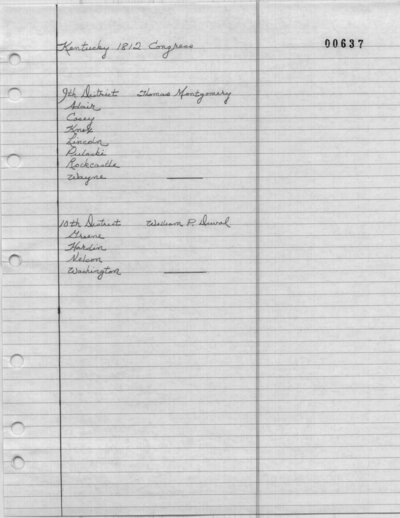 Kentucky 1812 Congress
00637
9th District Thomas Montgomery
Adair
Casey
Knox
Lincoln
Pulaski
Rockcastle
Wayne
10th District William P. Duval
Greene
Hardin
Nelson
Washington